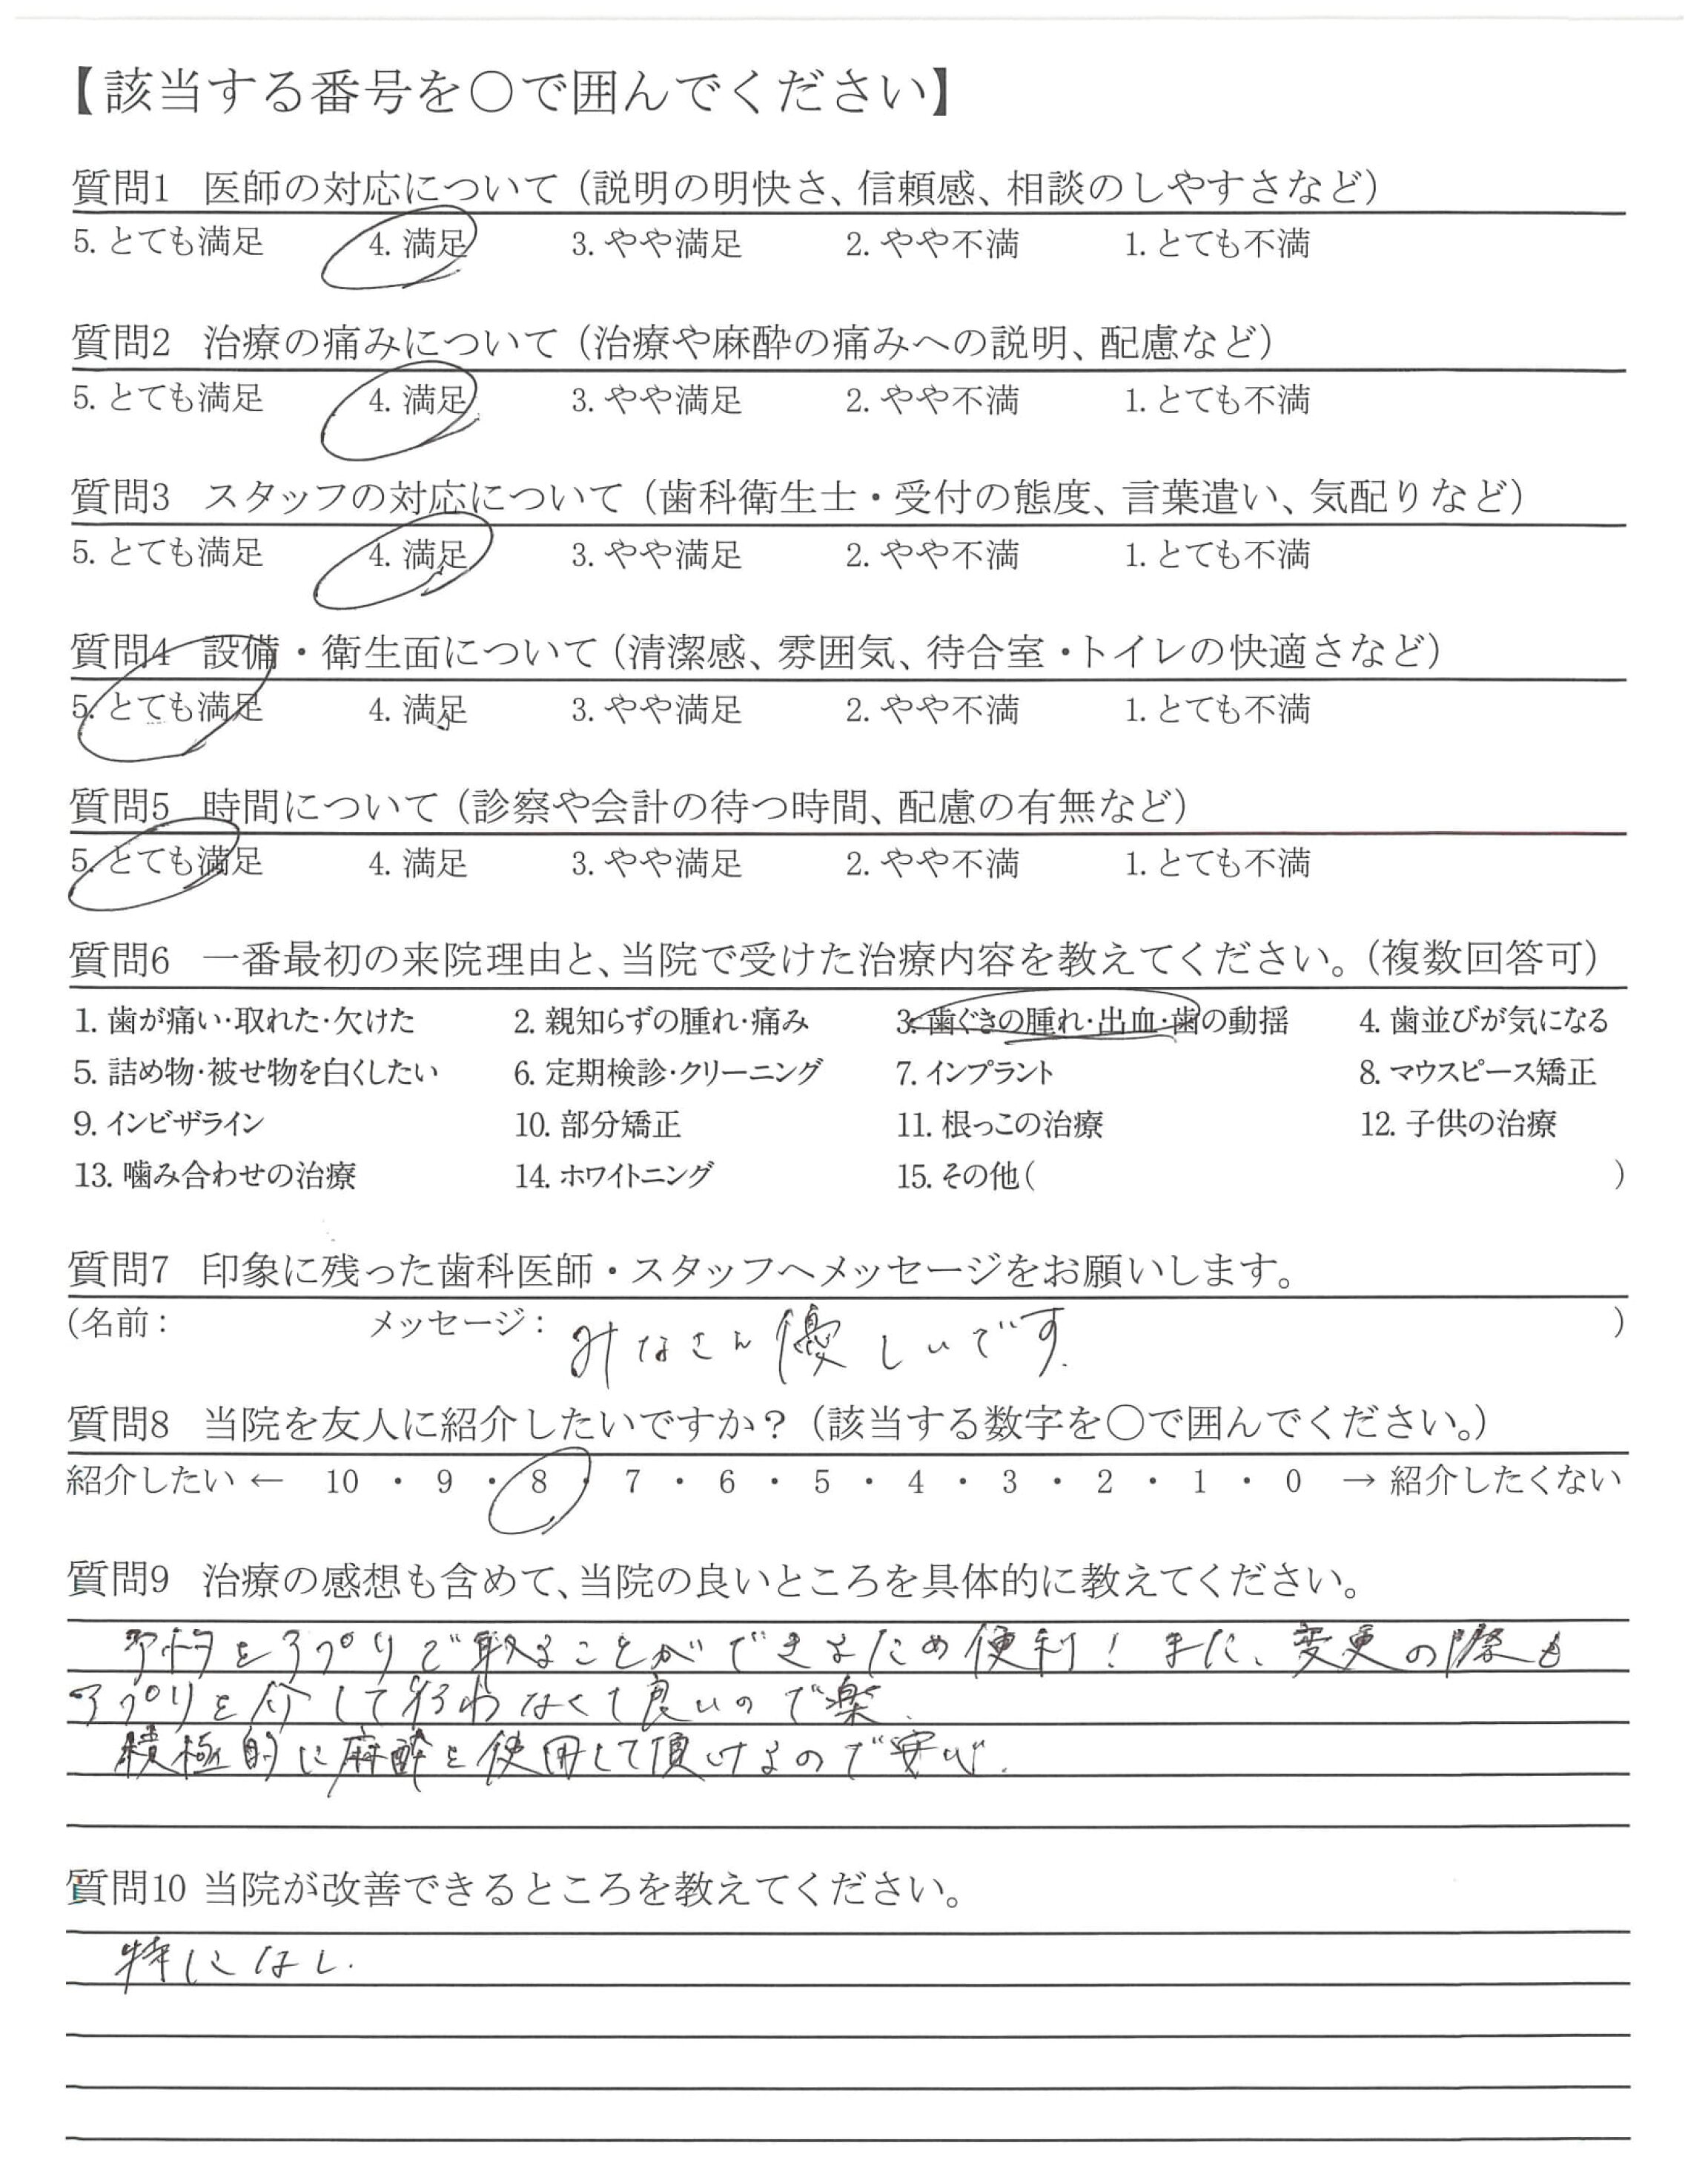 【該当する番号を○で囲んでください】
質問1 医師の対応について（説明の明快さ、信頼感、相談のしやすさなど）
5. とても満足 4. 満足 3. やや満足 2. やや不満 1. とても不満
質問2 治療の痛みについて（治療や麻酔の痛みへの説明、配慮など）
5. とても満足 4. 満足 3. やや満足 2. やや不満 1. とても不満
質問3 スタッフの対応について（歯科衛生士・受付の態度、言葉遣い、気配りなど）
5. とても満足 4. 満足 3. やや満足 2. やや不満 1. とても不満
質問4 設備・衛生面について（清潔感、雰囲気、待合室・トイレの快適さなど）
5. とても満足 4. 満足 3. やや満足 2. やや不満 1. とても不満
質問5 時間について（診察や会計の待つ時間、配慮の有無など）
5. とても満足 4. 満足 3. やや満足 2. やや不満 1. とても不満
質問6 一番最初の来院理由と、当院で受けた治療内容を教えてください。（複数回答可）
1. 歯が痛い・取れた・欠けた 2. 親知らずの腫れ・痛み 3. 歯ぐきの腫れ・出血・歯の動揺 4. 歯並びが気になる
5. 詰め物・被せ物を白くしたい 6. 定期検診・クリーニング 7. インプラント 8. マウスピース矯正
9. インビザライン 10. 部分矯正 11. 根っこの治療 12. 子供の治療
13. 噛み合わせの治療 14. ホワイトニング 15. その他（ ）
質問7 印象に残った歯科医師・スタッフへメッセージをお願いします。
（名前： メッセージ： みなさん優しいです。 ）
質問8 当院を友人に紹介したいですか？（該当する数字を○で囲んでください。）
紹介したい ← 10 ・ 9 ・ 8 ・ 7 ・ 6 ・ 5 ・ 4 ・ 3 ・ 2 ・ 1 ・ 0 → 紹介したくない
質問9 治療の感想も含めて、当院の良いところを具体的に教えてください。
予約をアプリで取ることができるため便利！また、変更の際も
アプリを介して行わなくて良いので楽。
積極的に麻酔を使用して頂けるので安心。
質問10 当院が改善できるところを教えてください。
特になし.